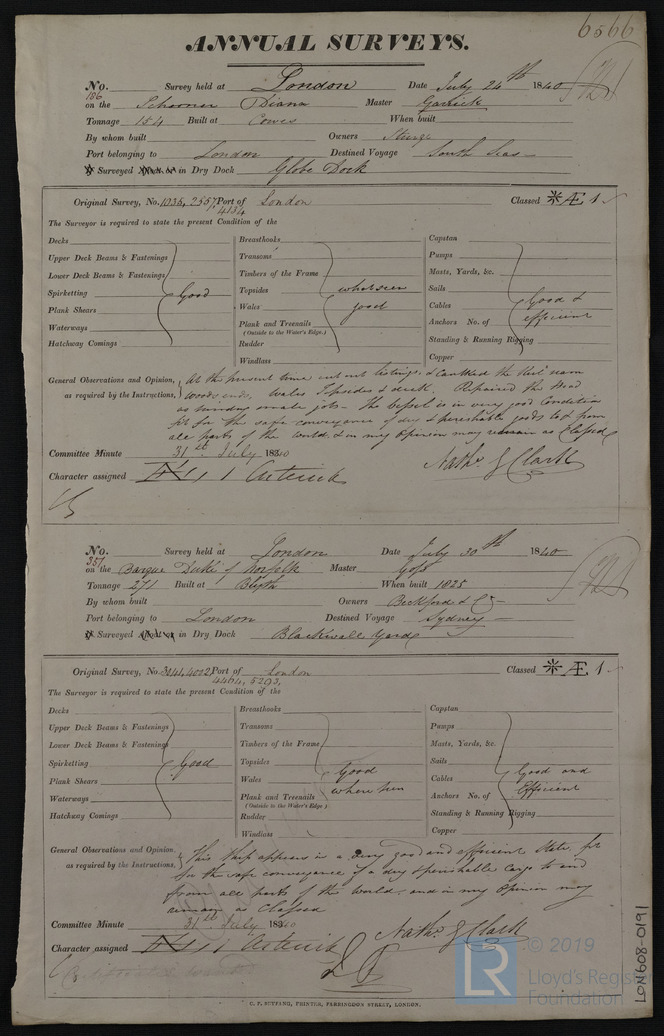 6566
ANNUAL SURVEYS.
No. 186 Survey held at London Date July 24th 1840
on the Schooner Diana Master Garrick
Tonnage 154 Built at Cowes When built
By whom built Owners Sturge
Port belonging to London Destined Voyage South Seas
Surveyed in Dry Dock Globe Dock
Original Survey, No. 1036, 2557, 4134 Port of London Classed Æ 1
The Surveyor is required to state the present Condition of the
Decks Breasthooks Capstan
Upper Deck Beams & Fastenings Transoms Pumps
Lower Deck Beams & Fastenings Timbers of the Frame Masts, Yards, &c.
Spirketting Good Topsides where seen Sails
Plank Shears Wales good Cables Good &
Waterways Plank and Treenails Anchors No. of efficient
(Outside to the Water's Edge.)
Hatchway Comings Rudder Standing & Running Rigging
Windlass Copper
General Observations and Opinion, At the present time cut out listings & caulked the
as required by the Instructions, woods ends, Wales Topsides & deck. Repaired the Head
as sundry small jobs - the Vessel is in very good Condition
fit for the safe conveyance of dry & perishable goods to & from
all parts of the world, & in my Opinion may remain as Classed
Committee Minute 31st July 1840
Nathl. G Clark
Character assigned A 1 Asterisk
No. 351 Survey held at London Date July 30th 1840
on the Barque Duke of Norfolk Master Goss
Tonnage 271 Built at Blyth When built 1835
By whom built Owners Beckford & Co
Port belonging to London Destined Voyage Sydney
Surveyed in Dry Dock Blackwall Yard
Original Survey, No. 3041, 4002, 4464, 5293, Port of London Classed Æ 1
The Surveyor is required to state the present Condition of the
Decks Breasthooks Capstan
Upper Deck Beams & Fastenings Transoms Pumps
Lower Deck Beams & Fastenings Timbers of the Frame Masts, Yards, &c.
Spirketting Good Topsides Good Sails
Plank Shears Wales where seen Cables Good and
Waterways Plank and Treenails Anchors No. of Efficient
(Outside to the Water's Edge.)
Hatchway Comings Rudder Standing & Running Rigging
Windlass Copper
General Observations and Opinion, This Ship appears in a very good and efficient State, fit
as required by the Instructions, for the safe conveyance of a dry & perishable cargo to and
from all parts of the world, and in my Opinion may
remain as Classed
Committee Minute 31st July 1840
Nathl. G Clark
Character assigned A 1 Asterisk
C. F. SEYFANG, PRINTER, FARRINGDON STREET, LONDON.
LON608-0191
© 2019
LR
Lloyd's Register
Foundation